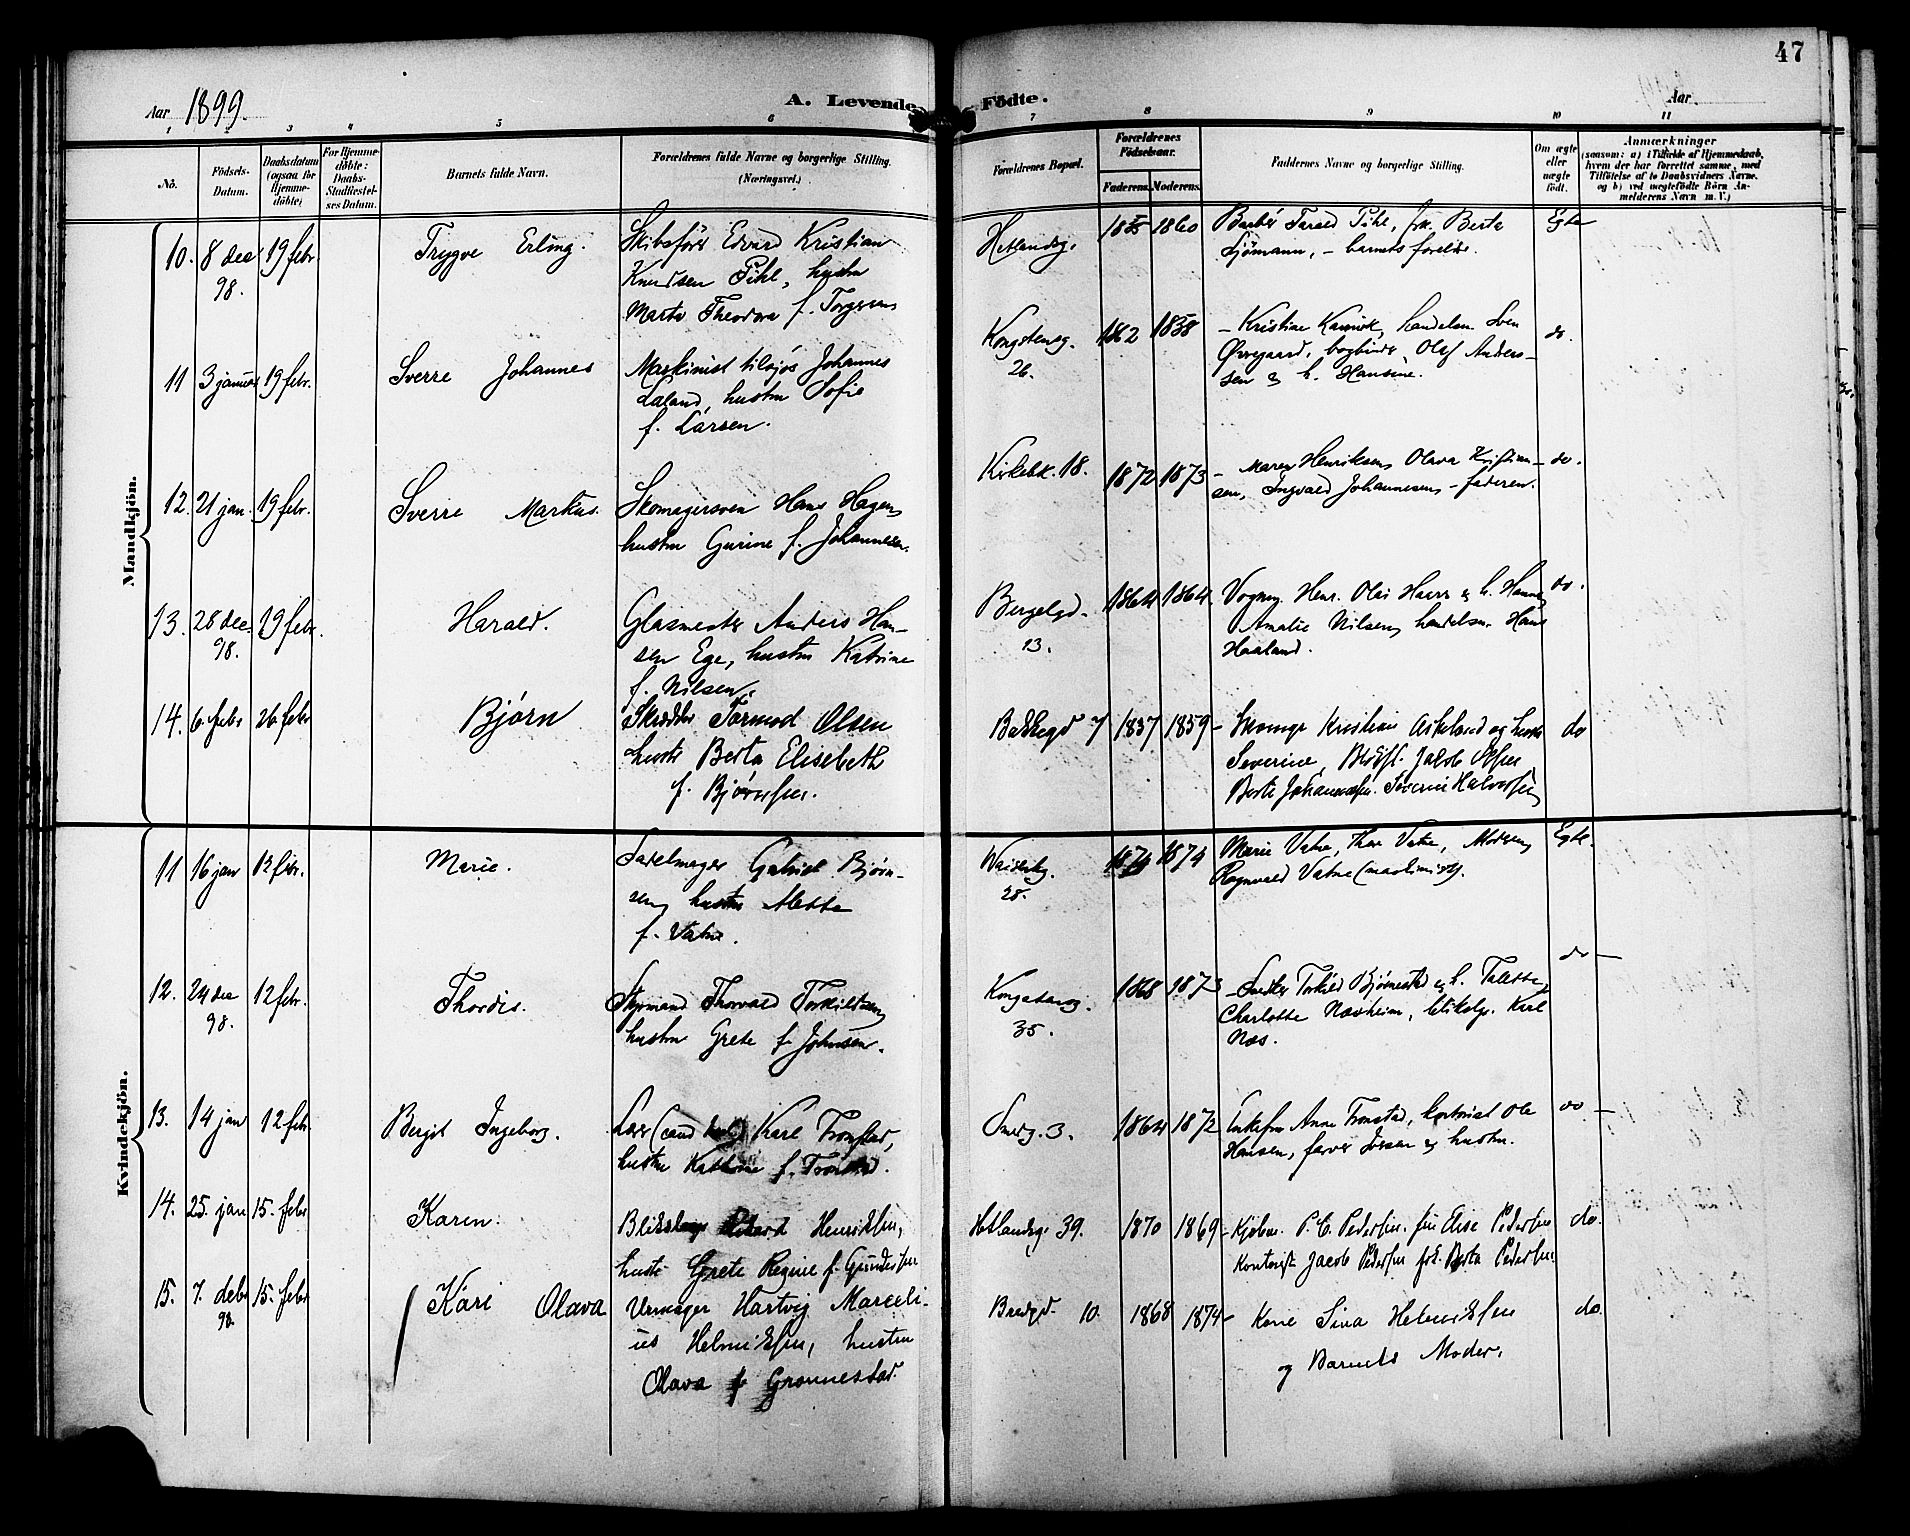 47
Aar 1899.
A. Levende Födte.
Aar
1 2 3 4 5 6 7 8 9 10 11
Nö.
Födsels-Datum.
Daabsdatum (ogsaa for Hjemme-döbte)
For Hjemme-döbte: Daabs-Stadfæstel-ses Datum.
Barnets fulde Navn.
Forældrenes fulde Navne og borgerlige Stilling.
(Næringsvei.)
Forældrenes Bopæl.
Forældrenes Födselsaar.
Faderens. Moderens.
Faddernes Navne og borgerlige Stilling.
Om ægte eller uægte födt.
Anmærkninger
(saasom: a) i Tilfælde af Hjemmedaab,
hvem der har forrettet samme, med
Tilföielse af to Daabsvidners Navne.
og b) ved uægtefödte Börn An-
melderens Navn m. V.)
Mandkjön.
10. 8 dec 98. 19 febr Trygve Erling.
Skibsfører Edvard Kristian
Knudsen Pihl, hustru
Marta Theodora f.
Hetlandsg. 1860
Tarald Pihl, frk. Berta
Sjømann, – barnets forældre.
Egte
11 3 januar 19 febr. Sverre Johannes
Maskinist tilsjøs Johannes
Laland, hustru Sofie
f. Larsen.
Kongstensg. 26. 1862 1858
– Kristine Kannik, handelsm. Sven
Øvregaard, bogbinder Olaf Anders-
sen & h. Hansine.
do.
12. 21 jan. 19 febr. Sverre Markus.
Skomagersven Hans Hagen,
hustru Gurine f. Johannesen.
Kirkebk. 18. 1872 1873
– Maren Henriksen, Olava Kristian-
sen, Ingvald Johannesen – faderen.
do.
13. 28 dec. 98. 19 febr. Harald.
Glasmester Anders Han-
sen Ege, hustru Katrine
f. Nilsen.
Bergelgd. 13. 1864 1864
Vognm. Henr. Olai & h. Hanna
Amalie Nilsen, handelsm. Hans
Haaland.
do.
14. 6. febr 26 febr Bjørn
Skrædder Tormod Olsen
hustr Berta Elisebeth
f. Bjørnsen.
Bakkegd 7 1857 1859
– Kristian Askeland og hustr
Severine, Jacob Olsen
Berte Johannesen. Severine Halvorsen
do
Kvindekjön.
11 16 jan 12 febr. Marie.
Salelmager Gabriel Bjørn-
sen, hustru Mette
f. Vatne.
1874 1874
Marie Vatne, Thea Vatne, Moderen,
Ragnvald Vatne (maskinist).
Egte.
12. 24 dec 98. 12 febr. Thordis.
Styrmand Thorvald Torkildsen,
hustru Grete f. Johnsen.
35. 1868 1873
– Snedker Torkild Bjørnestad & h. Talette,
Charlotte Næsheim, blikslg. Karl
Næs.
do –
13. 14 jan 12 febr. Bergit Ingeborg.
Karl Tronstad,
hustru f. Tronstad.
Smedg. 3. 1864 1872
Enkefru Anne Tronstad, kontorist Ole
Hansen, farver & hustru.
do –
14. 25. jan 15. febr Karen.
Blikslager Henriksen,
hustr Grete Regine f. Gundersen
Hetlandsg. 39. 1870 1869
– Kjøbm. P. C. Pedersen. fru Elise Pedersen
Kontorist Jacob Pedersen frk. Berta Pedersen.
do.
15. 7. debr 98. 15. febr Kari Olava
Urmager Hartvig Marceli-
us Helmiksen, hustru
Olava f Grønnestad.
Bredgd. 10. 1868 1874
– Karie Sina Helmiksen
og Barnets Moder.
do.